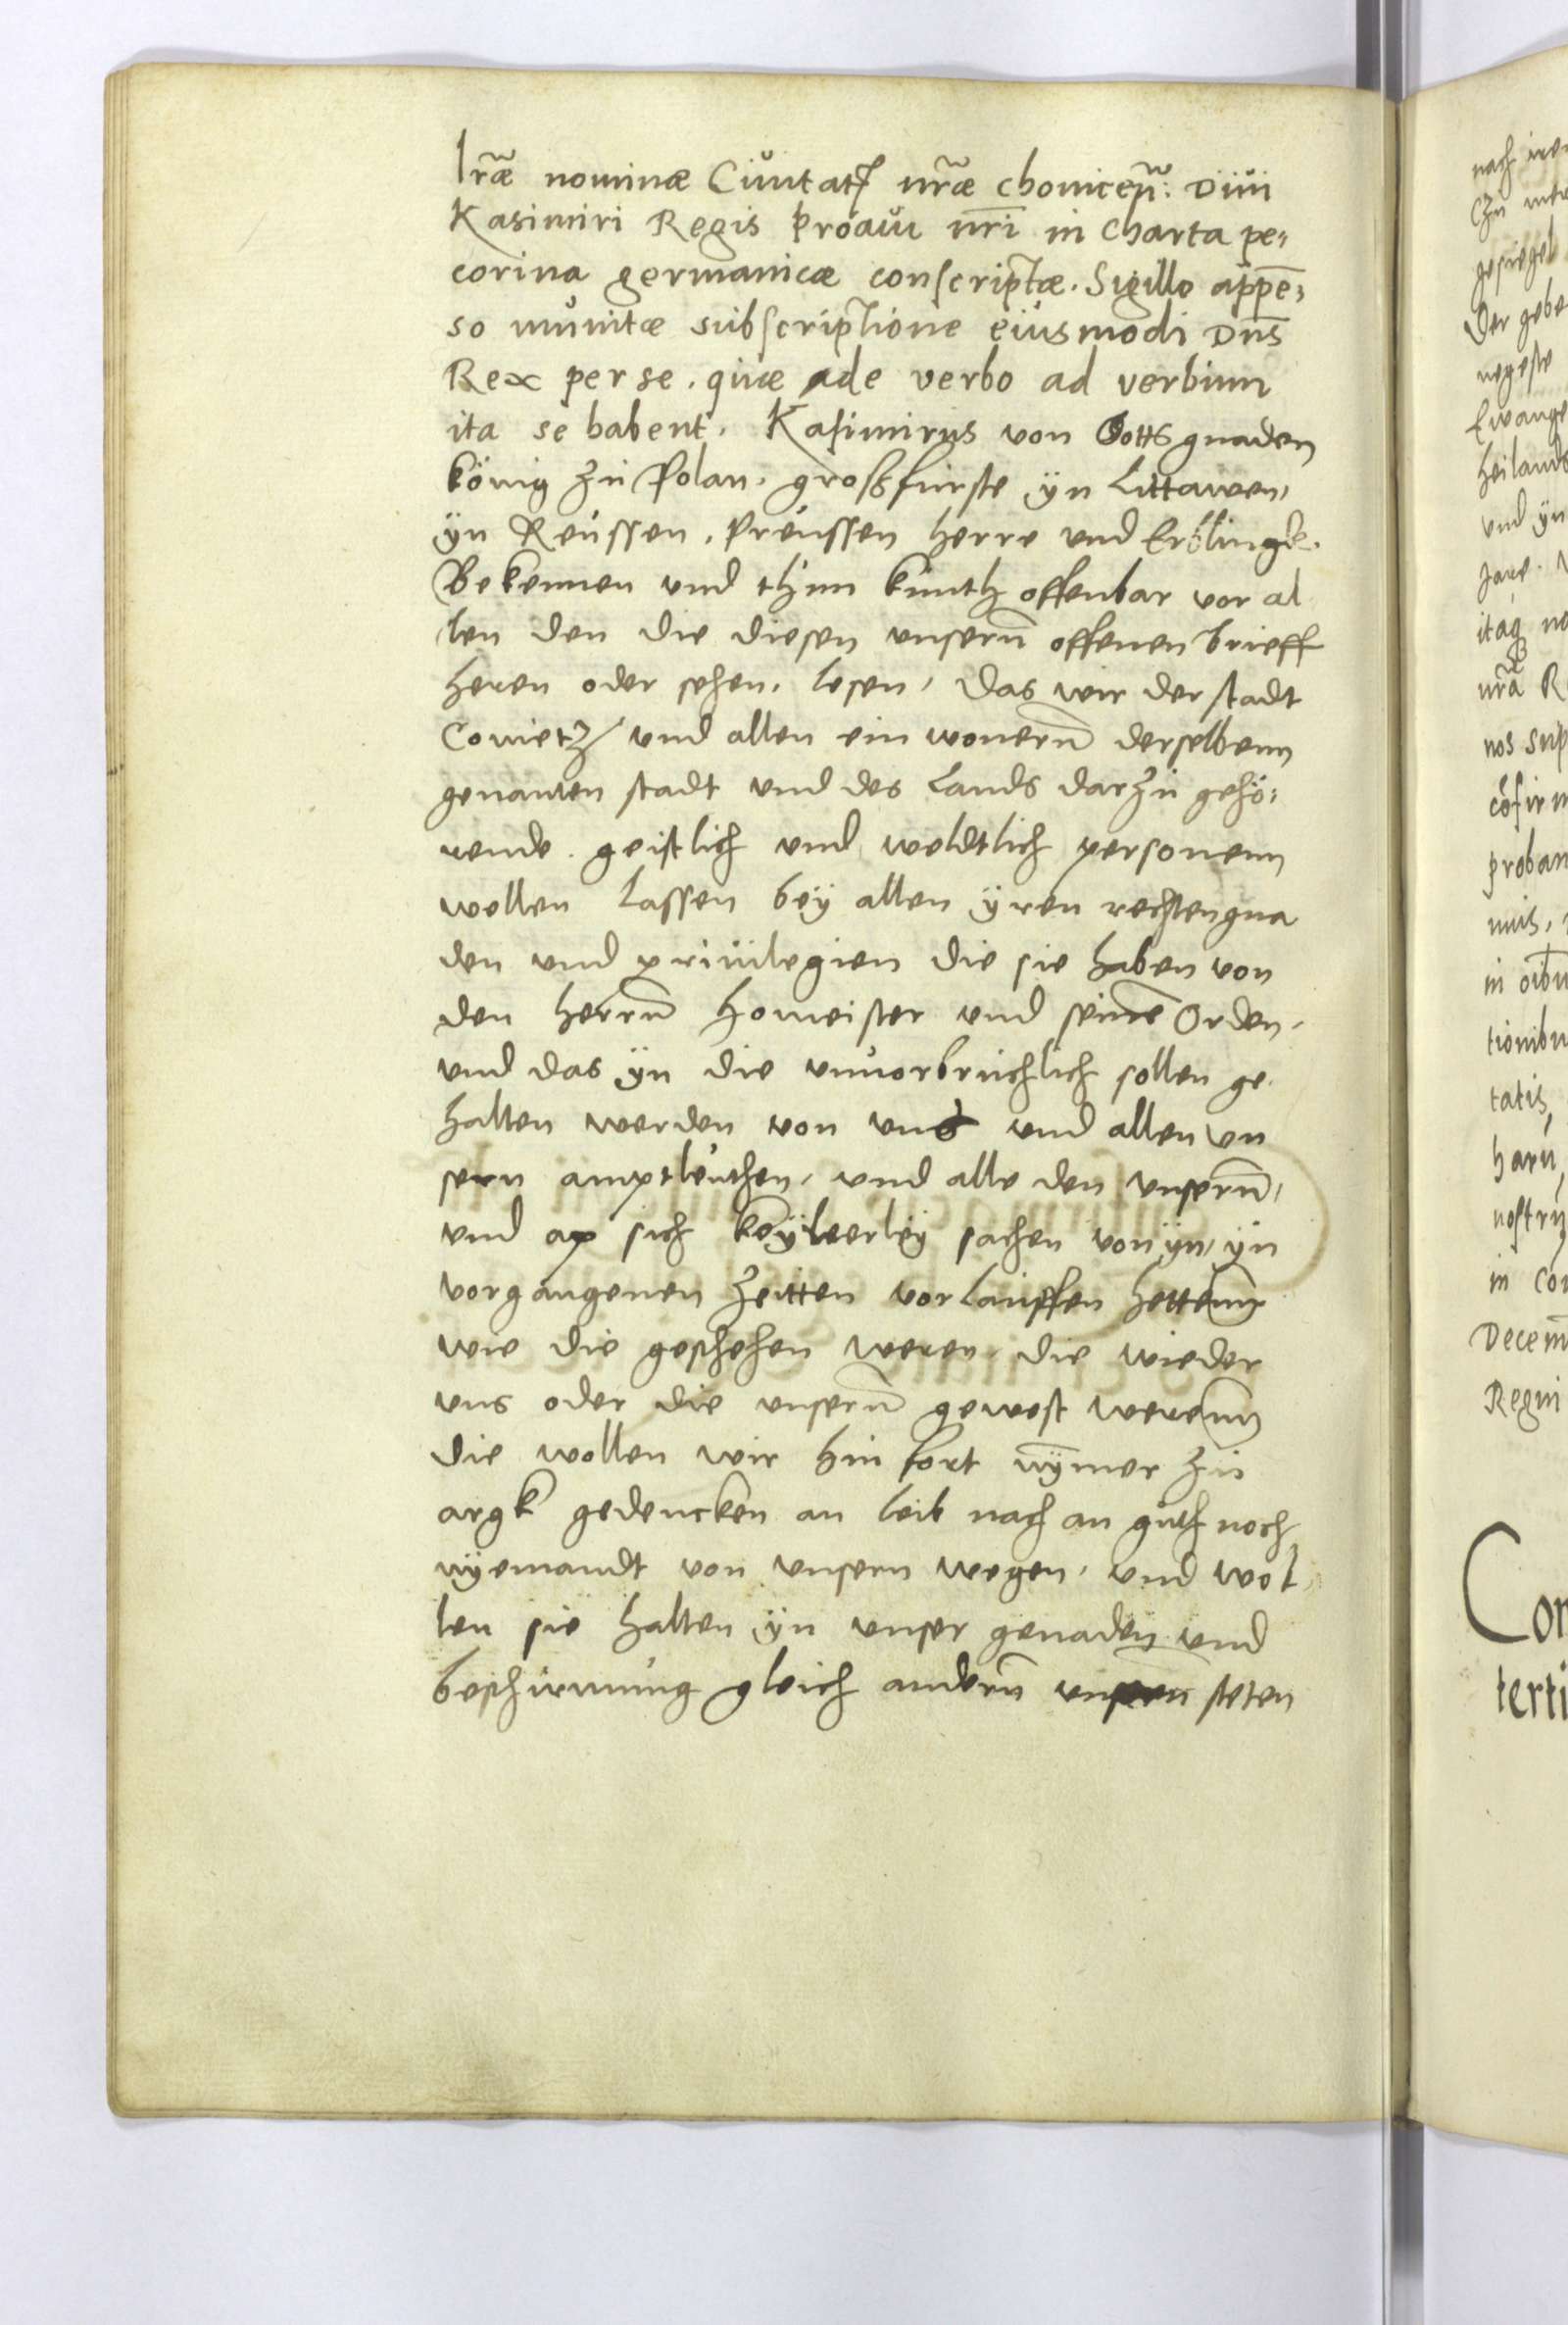 lr̃æ nominæ Ciuitatꝭ nr̃æ chonicen̄: Diui
Kasimiri Regis proaui nr̄i in Charta pe-
corina germanicæ conscriptæ. Sigillo appē-
so munitæ subscriptione eiusmodi Dn̄s
Rex per se. quæ de verbo ad verbum
ita se habent. Kasimirus von Gotts gnaden
könig zu Polan. grossfurste ÿn Littawen,
ÿn Reussen, Preussen herre und Erblingk.
Bekennen und thun kunth offenbar vor al
len den die diesen unsern̄ offenen brieff
heren oder sehen, lesen, das wir der stadt
Conietz und allen ein wonern̄ derselbenn
genanten stadt und des Lands darzu gehö-
rende geistlich und weldtlich personenn
wellen lassen beÿ allen ÿren rechten gna
den und priuilegien die sie haben von
den herrn̄ homeister und seinē Orden,
und das ÿn die unuorbruchlich sollen ge
halten werden von uns und allen un
sern amptleuthen, und alle den unsern̄,
und ap sich keÿleerleÿ sachen von ÿn, ÿn
vorgangenen zeitten vorlauffen hettenn
wie die geschehen weren, die wieder
uns oder die unsern̄ gewest werenn
die wollen wir hin fort nȳmer zu
argk gedencken an leib nach an guth noch
nÿemandt von unsern wegen, und wol
len sie halten ÿn unser genaden und
beschirmung gleich andern̄ unsern steten
nach
Czu
gesiegel
Der gebe
Ewange
heilands
und ÿn
Jare.
itaq
nr̃ā R
nos sup
cōfirm
proban
in oību
tionibu
tatis,
harū
nostrū
in con
Decem
Regni
Con
terti